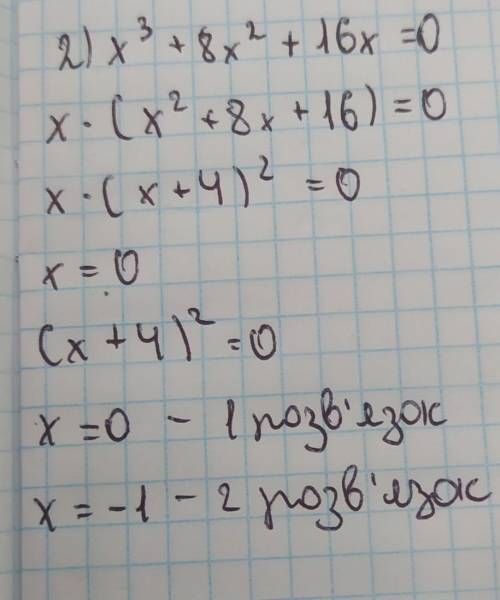 2) x³ + 8x² + 16x = 0
x · (x² + 8x + 16) = 0
x · (x + 4)² = 0
x = 0
(x + 4)² = 0
x = 0 – 1 розв'язок
x = -1 – 2 розв'язок